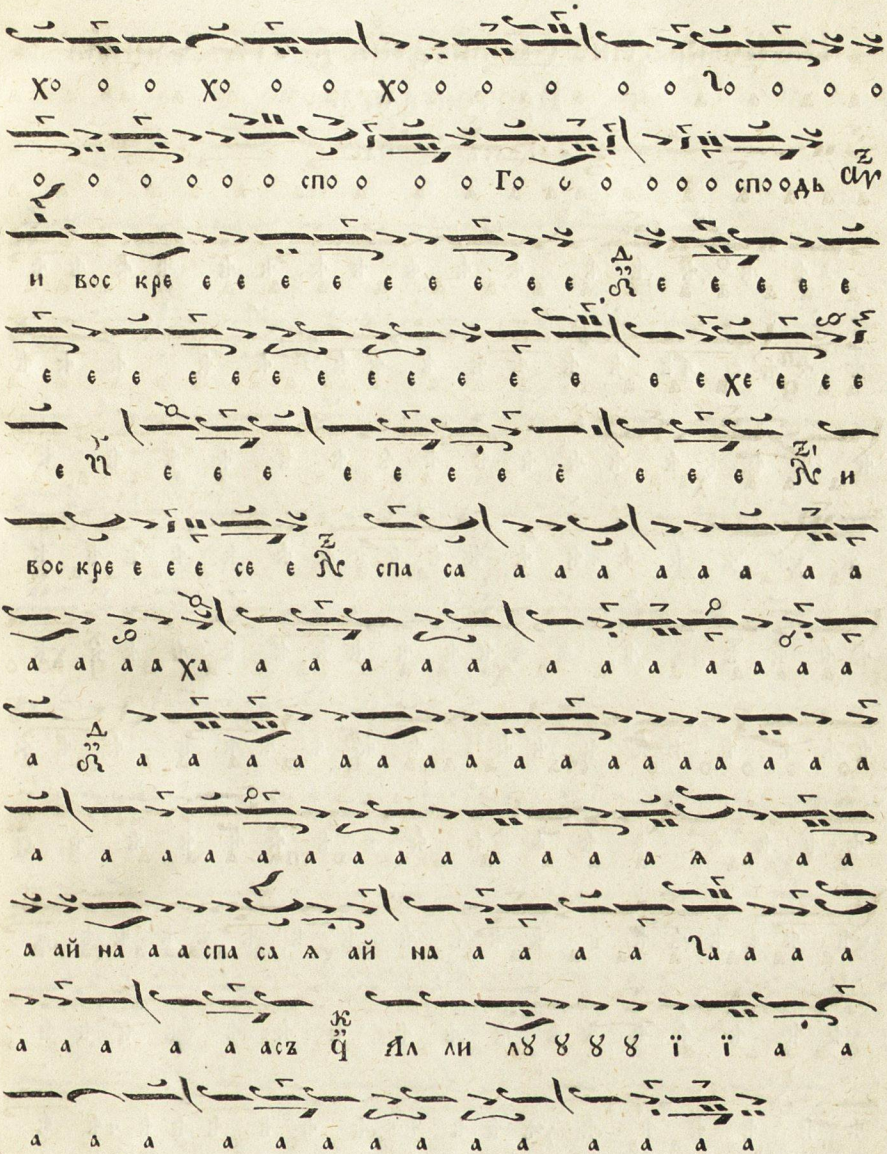 хо о о хо о о хо о о о о о ло о о о о
о о о о о о спо о о о Го о о о о о спо о дь
и вос кре е е е е е е е е е е е е е е
е е е е е е е е е е е е е е хе е е е
е е е е е е е е е е е и
вос кре е е е се е спа са а а а а а а а а
а а а а ха а а а а а а а а а а а а
а а а а а а а а а а а а а а а а а
а а а а а а а а а а а а ѧ а а а
а ай на а а спа са ѧ ай на а а а а ла а а а
а а а а а асъ Ал ли лꙋ ꙋ ꙋ ꙋ ї ї а а
а а а а а а а а а а а а а